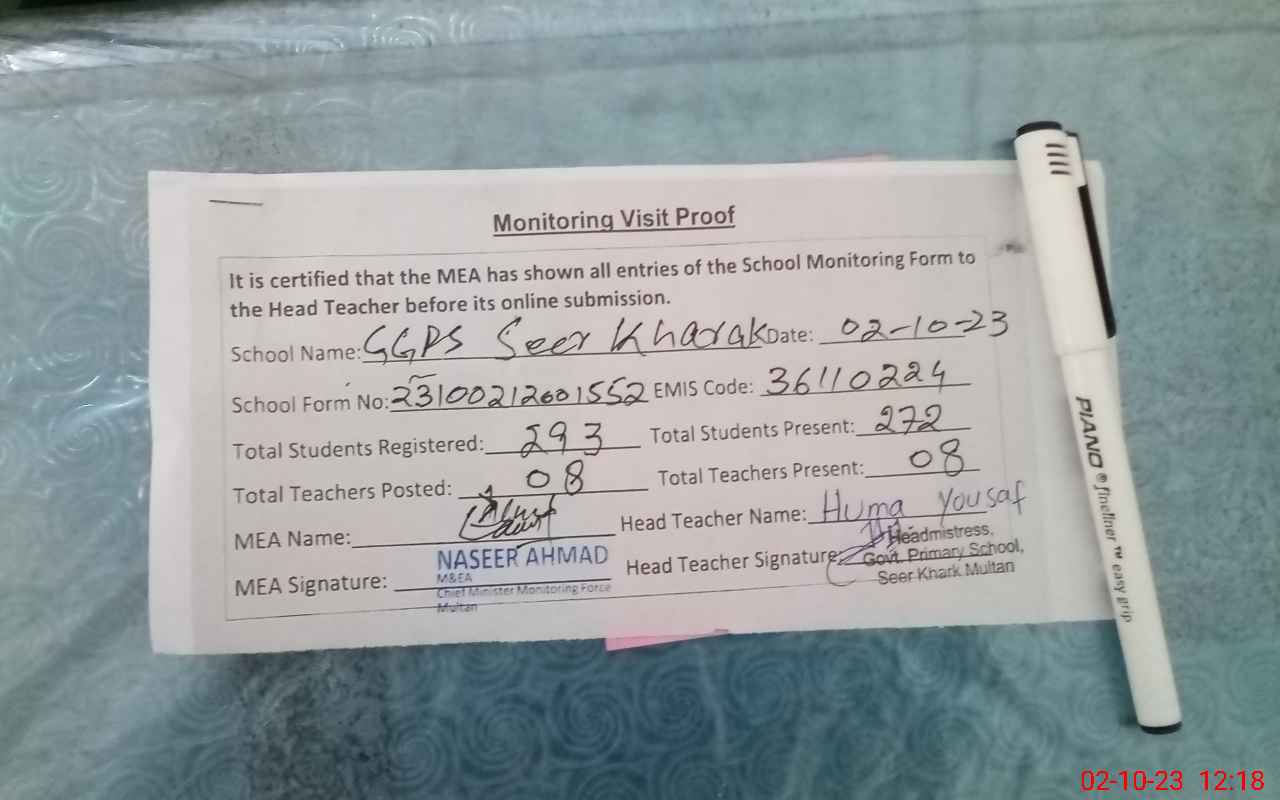 Monitoring Visit Proof
It is certified that the MEA has shown all entries of the School Monitoring Form to
the Head Teacher before its online submission.
School Name: GGPS Seer Kharak Date: 02-10-23
School Form No: 231002126001552 EMIS Code: 36110224
Total Students Registered: 293 Total Students Present: 272
Total Teachers Posted: 08 Total Teachers Present: 08
MEA Name: Head Teacher Name: Huma Yousaf
MEA Signature: NASEER AHMAD
M&EA
Chief Minister Monitoring Force
Multan
Head Teacher Signature: Headmistress,
Govt. Primary School,
Seer Khark Multan
PIANO ® fineliner ™ easy grip
02-10-23 12:18